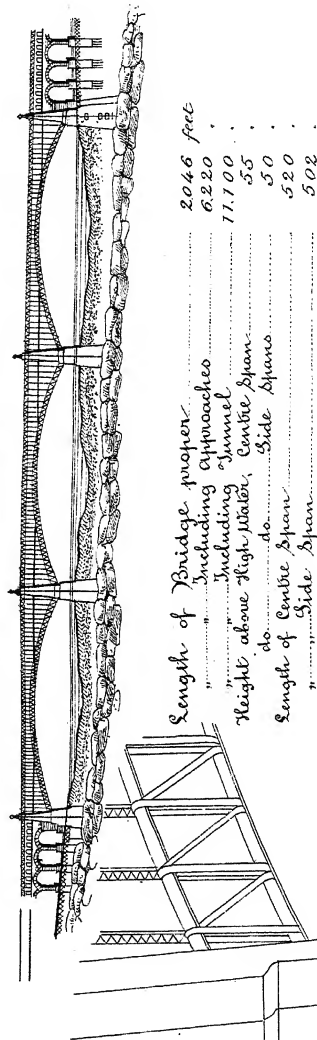 Length of Bridge proper 2046 feet
" " Including Approaches 6.220 "
" " Including Tunnel 11.100 "
Height above High Water, Centre Span 55 "
do. do. Side Spans 50 "
Length of Centre Span 520 "
" " Side Span 502 "